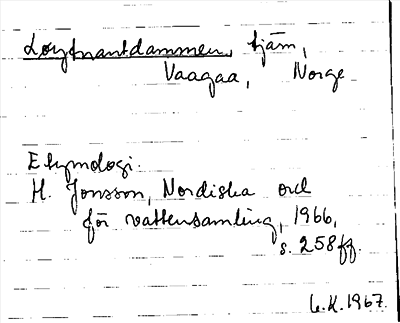 Løytnantdammen, tjärn,
Vaagaa, Norge
Etymologi.
H. Jonsson, Nordiska ord
för vattensamling, 1966,
s. 258ff.
L.H. 1967.